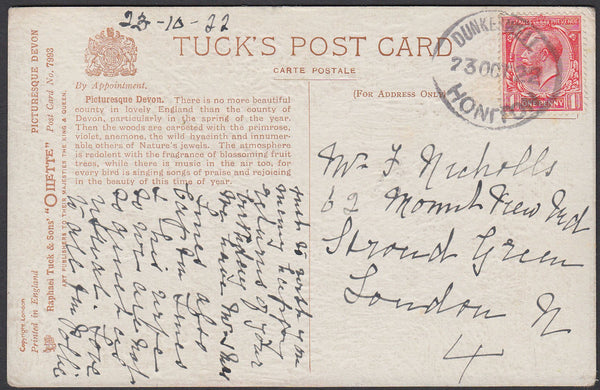 23-10-22
TUCK'S POST CARD
CARTE POSTALE
By Appointment.
(For Address Only)
Picturesque Devon. There is no more beautiful
county in lovely England than the county of
Devon, particularly in the spring of the year.
Then the woods are carpeted with the primrose,
violet, anemone, the wild hyacinth and innumer-
able others of Nature's jewels. The atmosphere
is redolent with the fragrance of blossoming fruit
trees, while there is music in the air too, for
every bird is singing songs of praise and rejoicing
in the beauty of this time of year.
PICTURESQUE DEVON
Post Card No. 7993
Raphael Tuck & Sons' "OILETTE"
ART PUBLISHERS TO THEIR MAJESTIES THE KING & QUEEN.
Copyright London
Printed in England
DUNKESWELL
23 OC
HONITON
ONE PENNY
Mr F Nicholls
62 Mount View Rd
Stroud Green
London N
4
just to wish you
many happy
returns of your
birthday
we have
times after